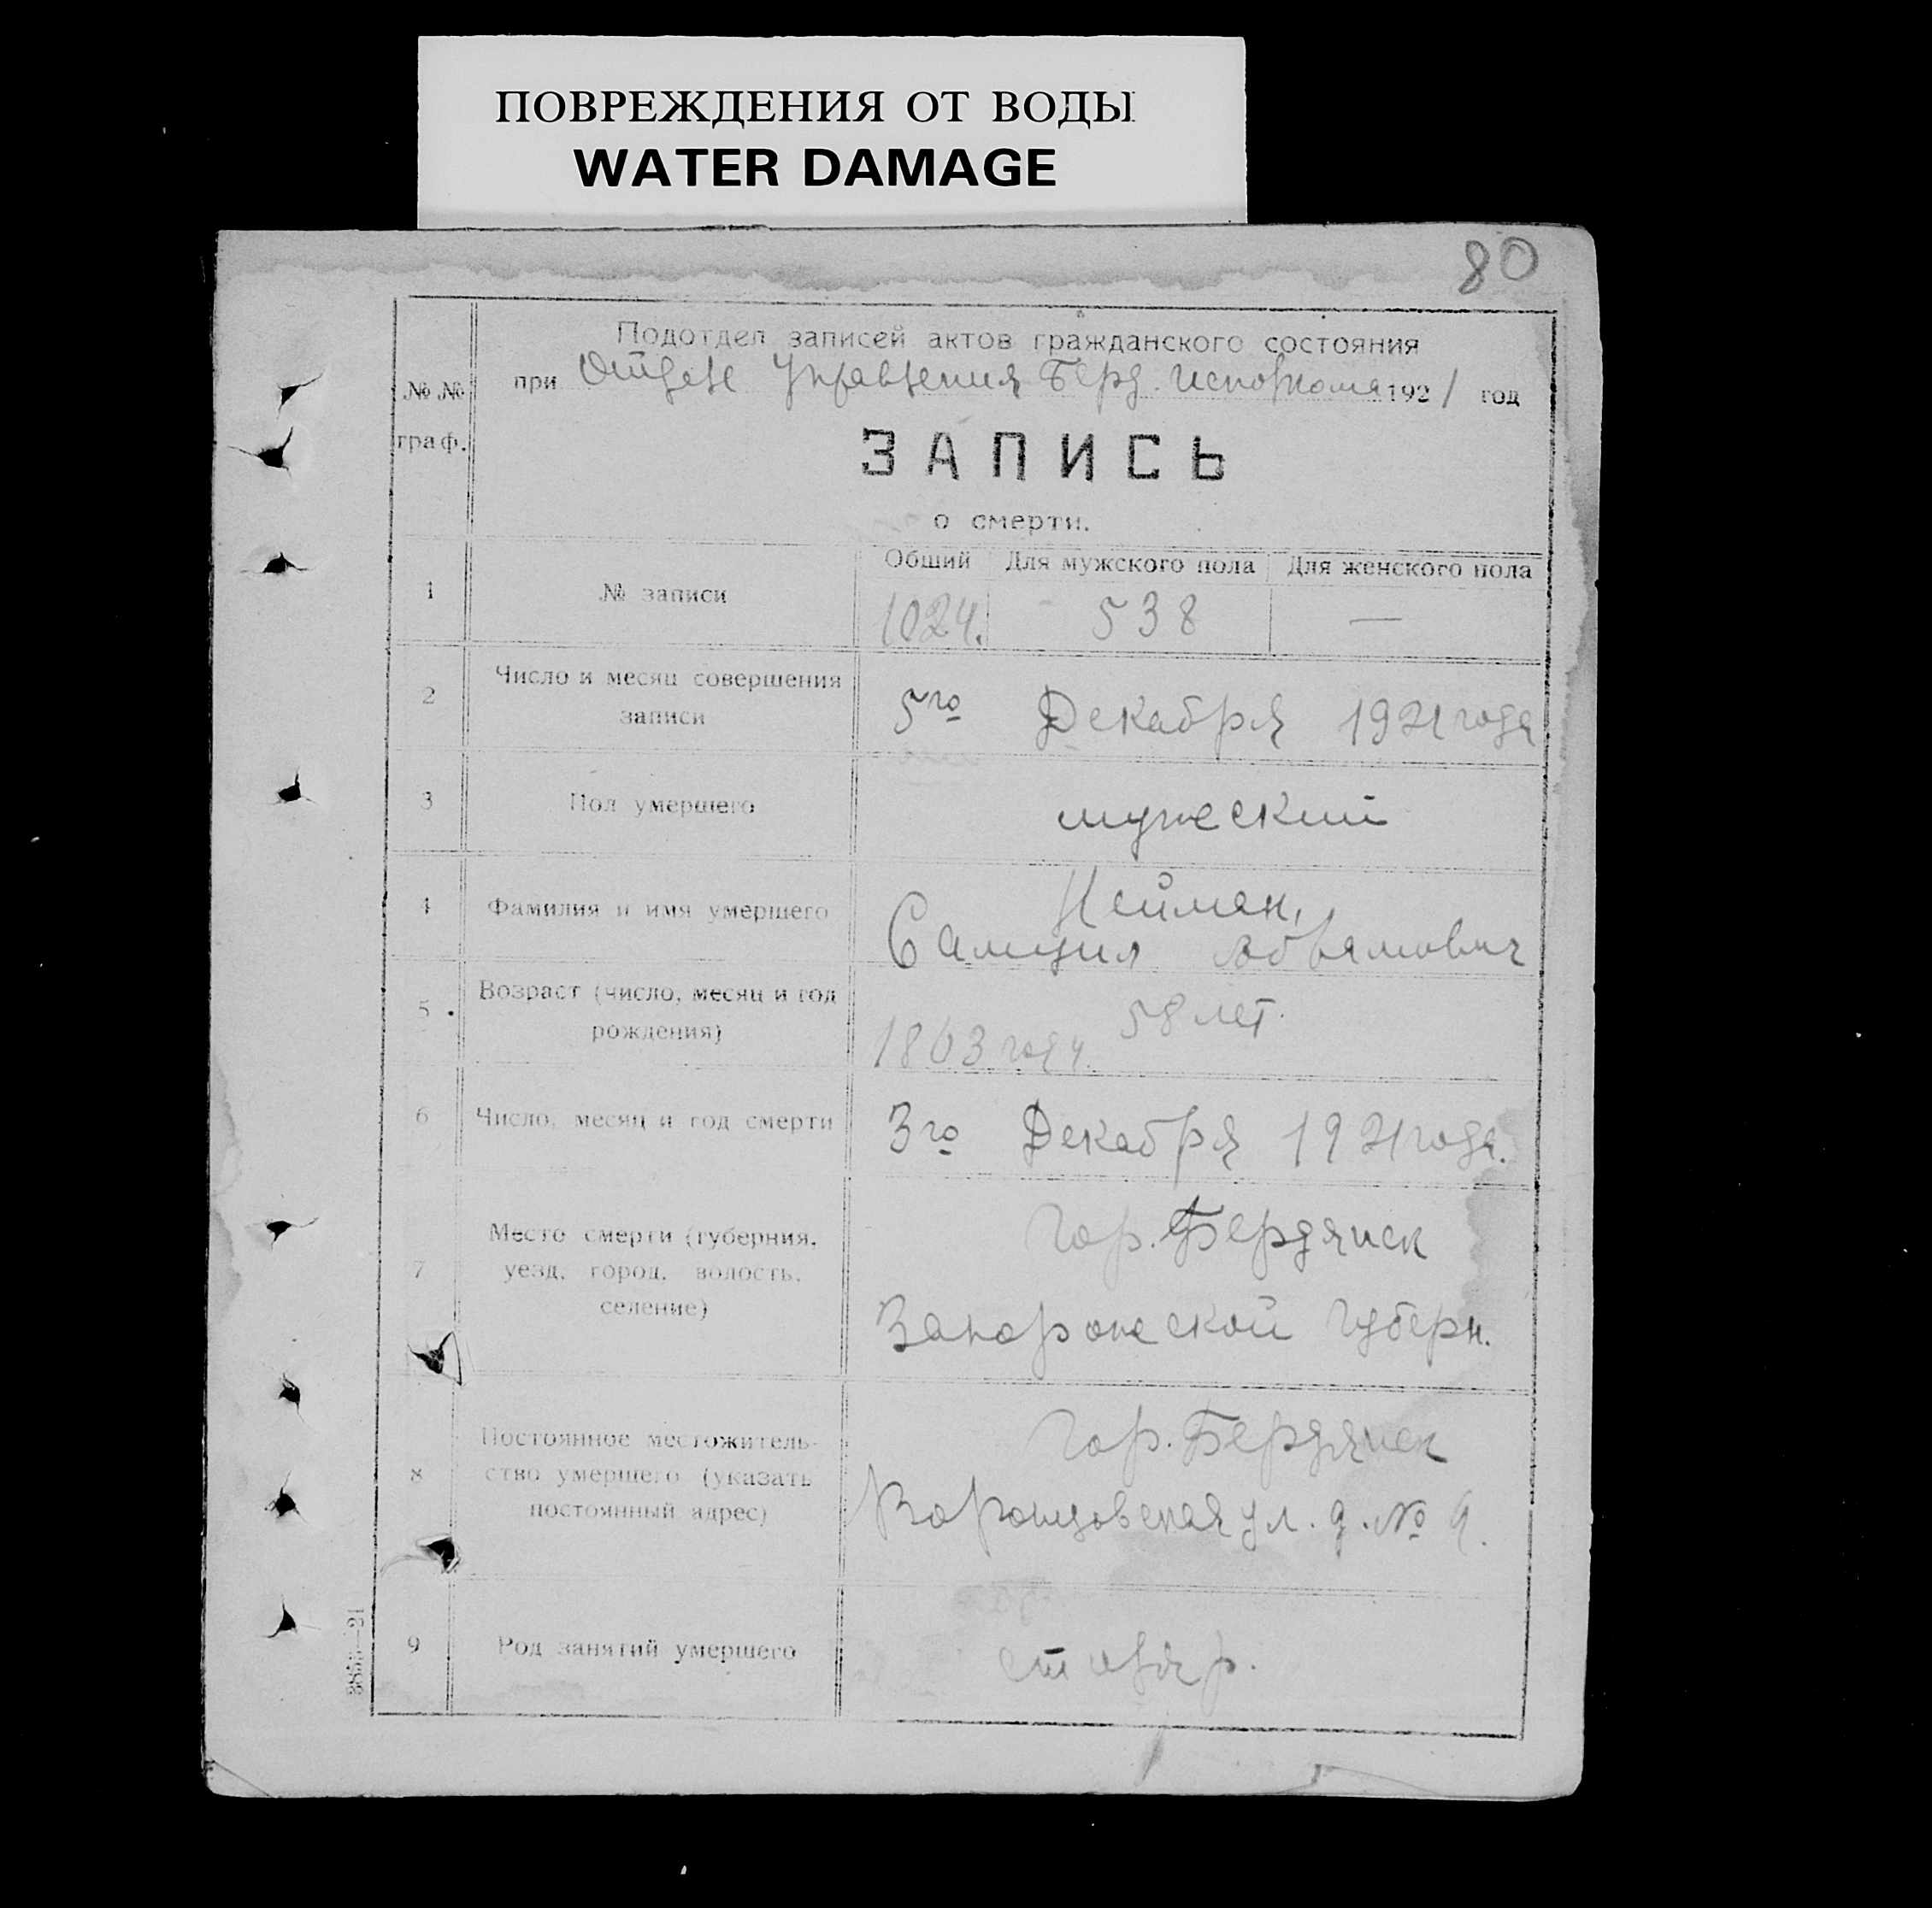 ПОВРЕЖДЕНИЯ ОТ ВОДЫ
WATER DAMAGE
80
Подотдел записей актов гражданского состояния
№ № граф.
при Отделе Управления Берд. Исполкома 1921 год
ЗАПИСЬ
о смерти.
Общий Для мужского пола Для женского пола
1 № записи 1024. 538 —
2 Число и месяц совершения
записи 5го Декабря 1921 года
3 Пол умершего мужеский
4 Фамилия и имя умершего Нейман,
Самуил Абрамович
5 Возраст (число, месяц и год
рождения) 1863 году. 58 лет.
6 Число, месяц и год смерти 3го Декабря 1921 года.
Место смерти (губерния, гор. Бердянск
7 уезд, город, волость,
селение) Запорожеской губерн.
Постоянное местожитель- гор. Бердянск
8 ство умершего (указать
постоянный адрес) Воронцовская ул. д. № 9.
9 Род занятий умершего столяр.